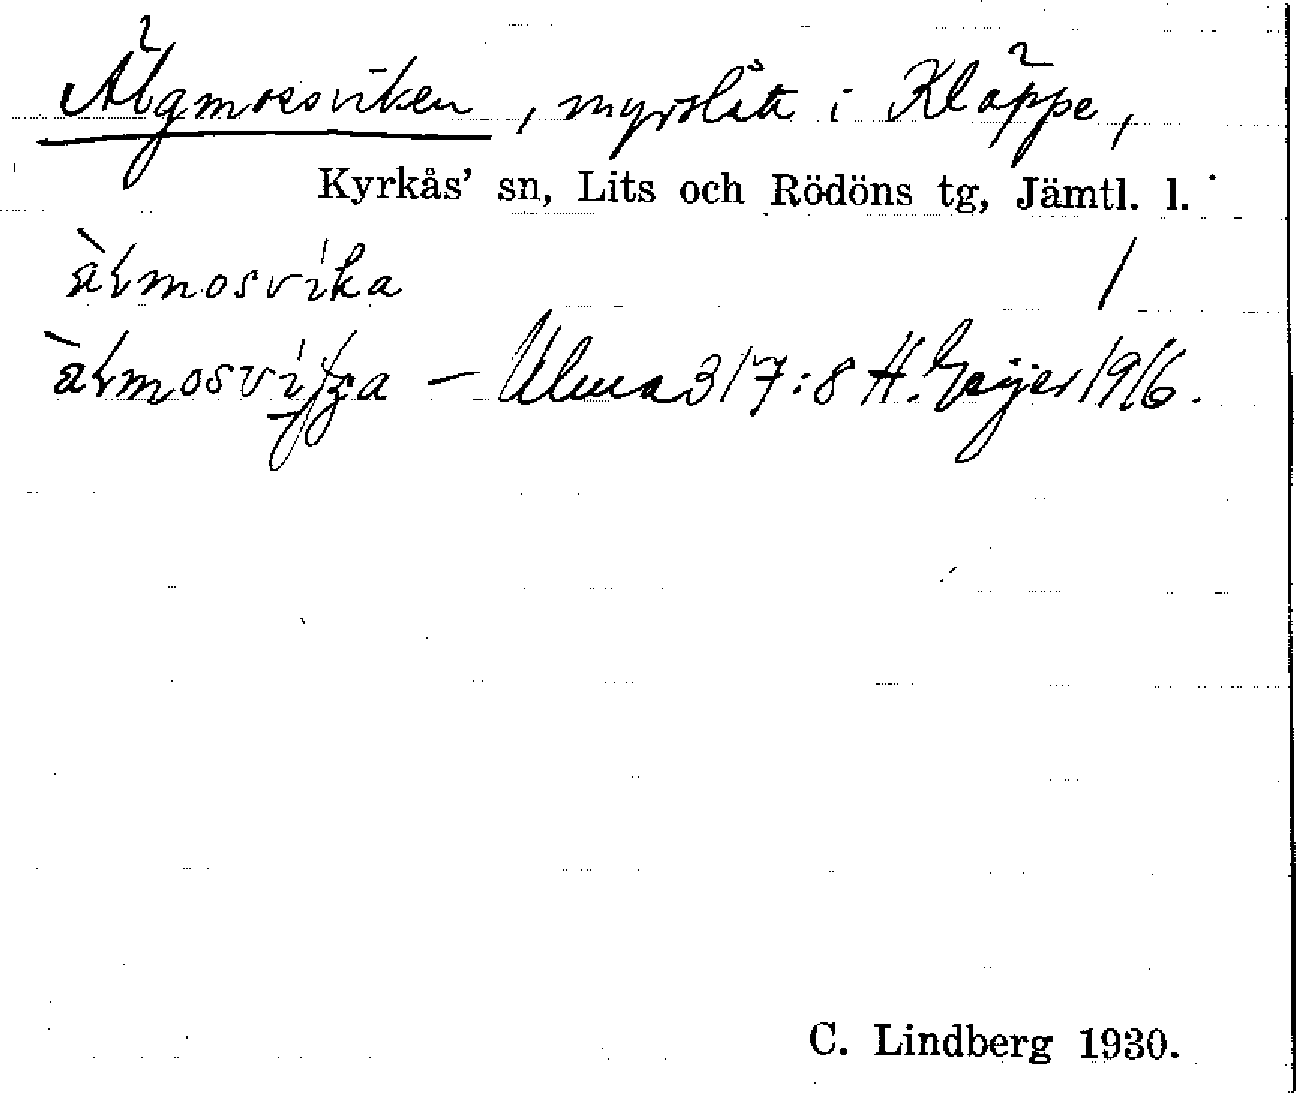 Älgmossviken, myrslått i Kläppe,
Kyrkås' sn, Lits och Rödöns tg, Jämtl. l.
àɫmosvíka /
— Ulma 317:8 H. Geijer 1916.
C. Lindberg 1930.